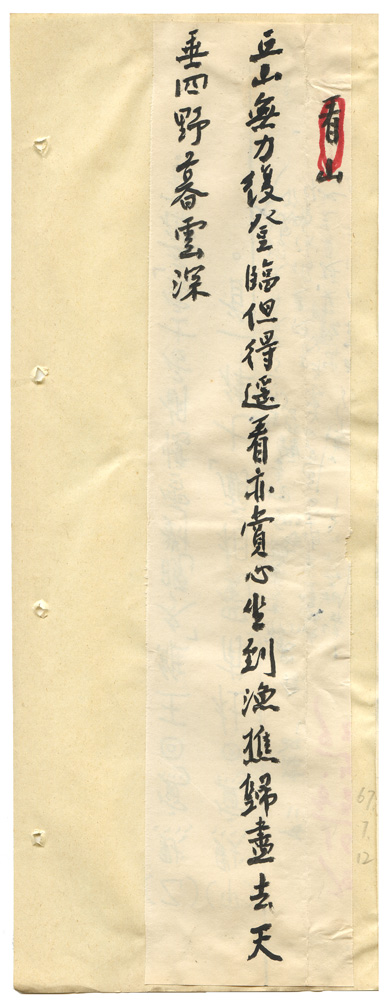 看山
丘山無力復登臨但得遥看亦賞心坐到漁樵歸盡去天
垂四野暮雲深
67.
7.
12